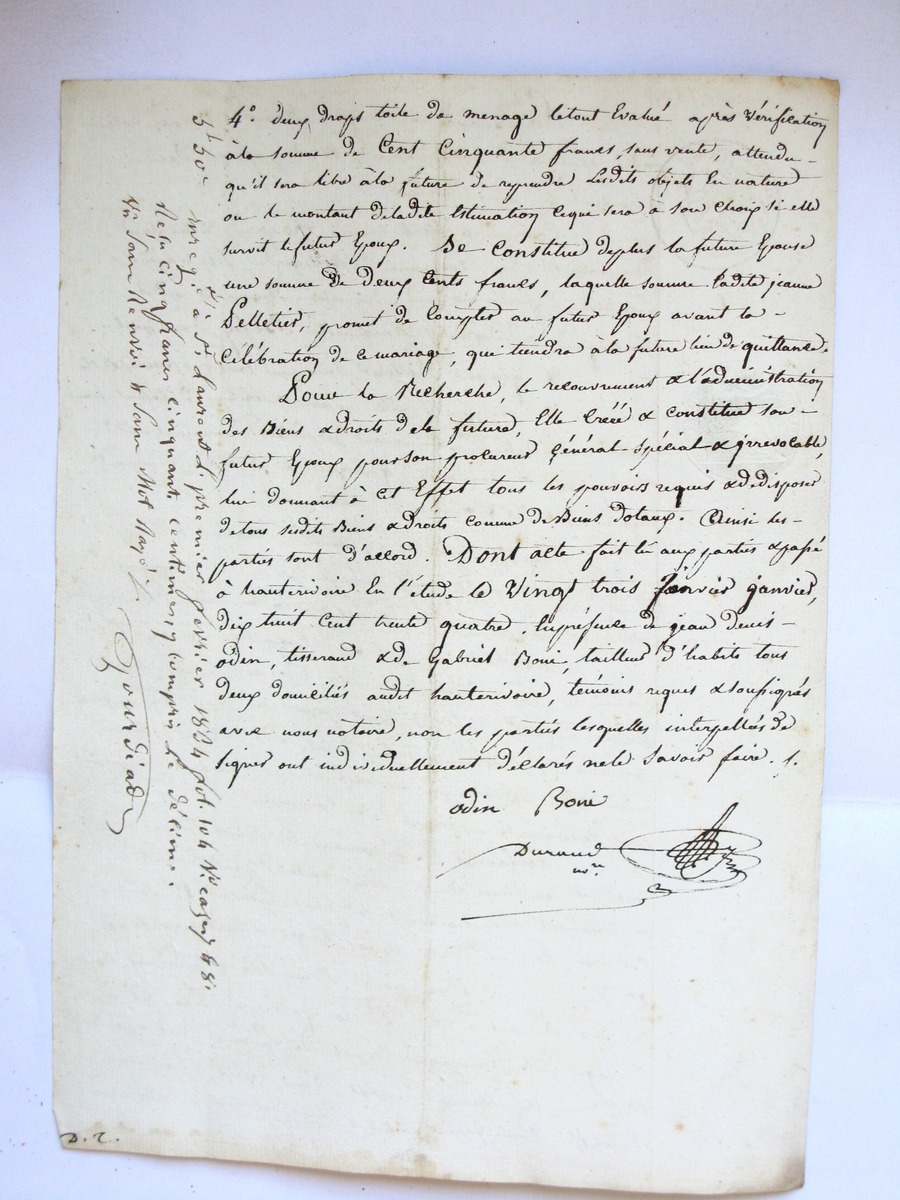 4° deux draps toile de menage letout Evalué après Vérification
àla somme de Cent Cinquante francs, sans vente, attendu -
qu'il sera libre àla future de reprendre lesdits objets En nature
ou le montant deladite Estimation cequi sera à son choix si elle
survit le futur Epoux. Se constitue deplus la future Epouse
une somme de deux Cents francs, laquelle somme ladite jeanne
Pelletier, promet de Compter au futur Epoux avant la -
Célébration de ce mariage, qui tiendra àla future lieu de quittance.
Pour la Recherche, le recouvrement & l'administration
des Biens & droits dela future, Elle Créée & constitue son -
futur Epoux pour son procureur Général Spécial & jrrevocable,
lui donnant à Cet Effet tous les pouvoirs requis & de disposer
de tous sesdits Biens & droits comme de Biens dotaux. Ainsi les -
parties sont d'accord. Dont acte fait lu aux parties & passé
à hauterivoire En l'étude le Vingt trois Janvier janvier,
dix huit Cent trente quatre. En présence de jean denis -
odin, tisserand & de Gabriel Boni, tailleur d'habits tous
deux domiciliés audit hauterivoire, témoins requis & soussignés
avec nous notaire, non les parties lesquelles interpellées de
signer ont individuellement déclarés ne le Savoir faire. /.
odin Boni
Durand
nre.
D. T.
5f 50c
enregé à St Laurent le premier fevrier 1834 fol. 104 Vo cases 4 8.
Reçu cinq francs cinquante centimes, y compris le décime.
Un Sans Renvoi & Sans Mot Rayé /.
Gourdiat